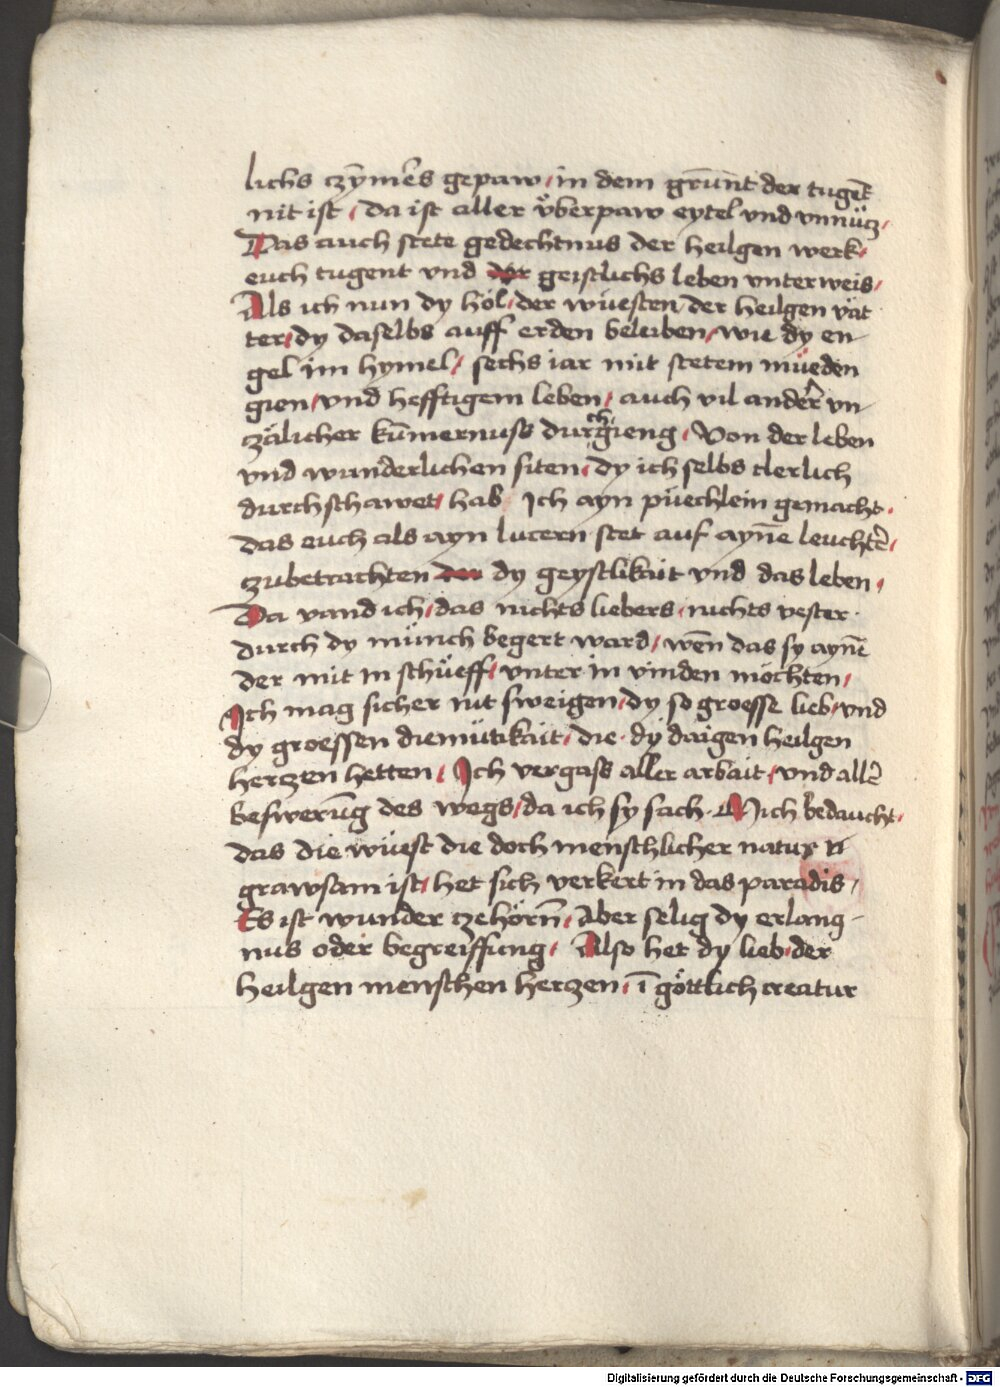 lichs czÿmers gepaw / in dem grūnt der tugēt
nit ist / da ist aller v̈berpaw eytel vnd vnnücz /
Das auch stete gedechtnus der heilgen werk /
euch tugent vnd der geistlichs leben vnterweis /
Als ich nun dy höl / der wüesten der heilgen vät
ter / dy daselbs auff erden beleiben / wie dy en
gel im hymel / sechs iar mit stetem müeden
gien / vnd hefftigem leben / auch vil anderr̄ vn
zälicher kūmernuss durchgieng / Von der leben
vnd wunderlichen siten / dy ich selbs clerlich
durchschawet / hab Ich ayn püechlein gemacht /
das euch als ayn lucern stet auf aynē leuchtē /
zubetrachten dy geystlikait vnd das leben /
Da vand ich / das nichts liebers / nichts vester ·
durch dy münch begert ward / wēn das sy aynē
der mit in schüeff / vnter in vinden möchten /
Ich mag sicher nit sweigen / dy so groesse lieb / vnd
dy groessen diemütikait / die · dy daigen heilgen
herczen hetten / Ich vergass aller arbait / vnd allē
beswerūg des wegs / da ich sy sach · Mich bedaucht /
das die wüest die doch menschlicher natur
grawsam ist / het sich verkert in das paradis /
Es ist wunder cze hörn̄ / Aber selig dy erlang -
nus oder begreiffung / Also het dy lieb / der
heilgen menschen herczen / ī göttlich creatur
Digitalisierung gefördert durch die Deutsche Forschungsgemeinschaft - DFG